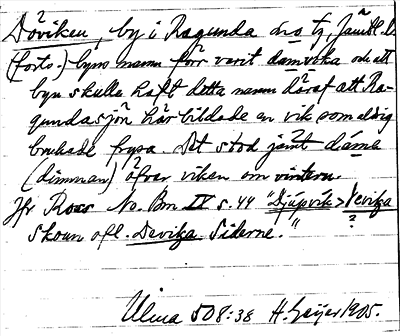 Döviken, by i Ragunda sn o tg, Jämtl. l.
(forts.) byns namn förr varit damvika och att
byn skulle haft detta namn däraf att Ra-
gundasjön här bildade en vik som aldrig
brukade frysa. Det stod jämt damb
(dimman) öfver viken om vintern.
Jfr Ross No. Bm IV s. 49 "Djúpvik > Devika
?
skoun ofl. Devika Siderne."
Ulma 508:38 H. Geijer 1905.